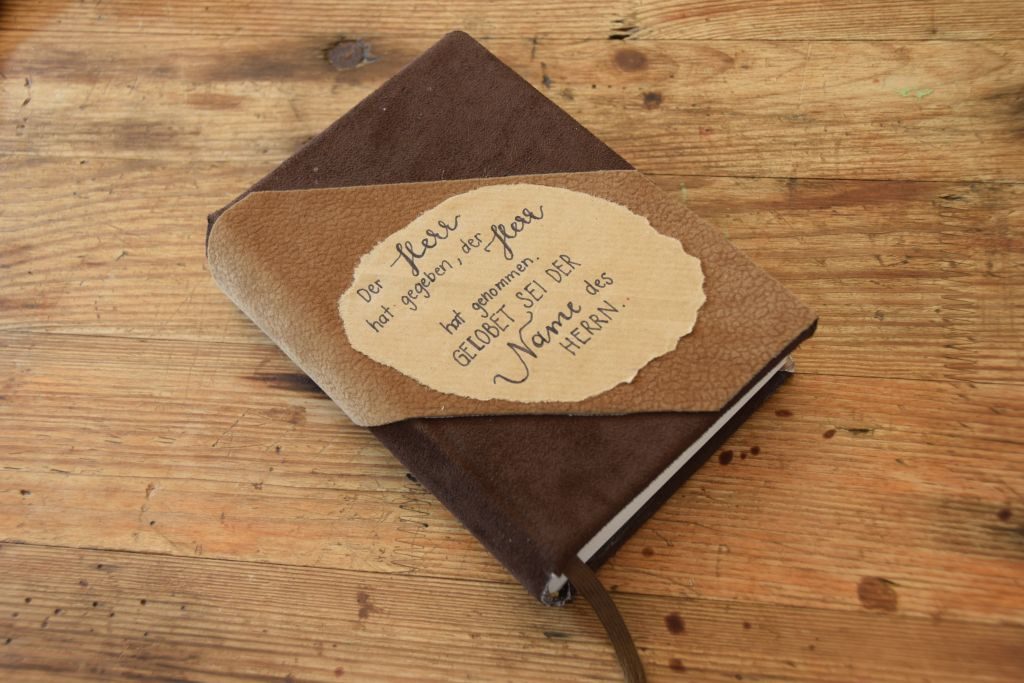 Der Herr
hat gegeben, der Herr
hat genommen.
GELOBET SEI DER
Name des
HERRN..